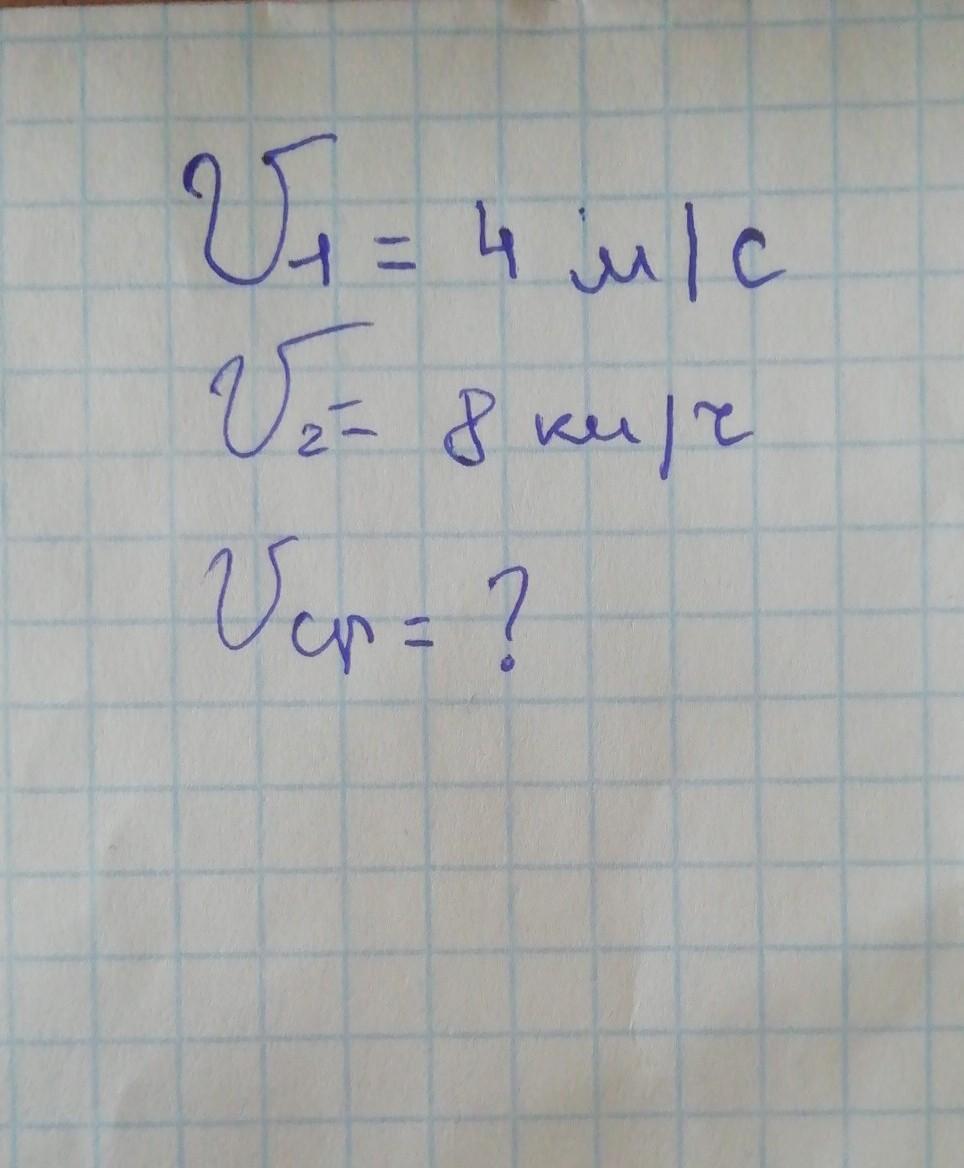 V₁ = 4 м/с
V₂ = 8 км/ч
Vср = ?